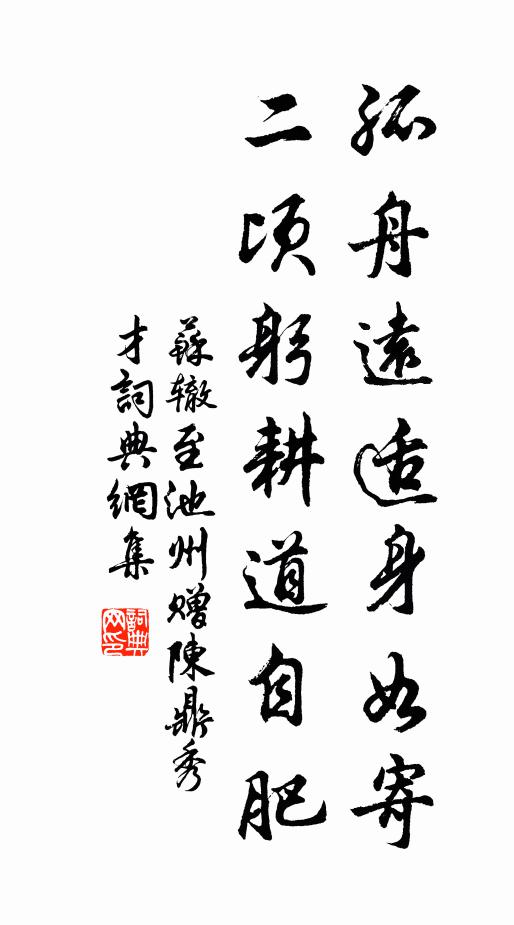 孤舟遠适身如寄
二頃躬耕道自肥
蘇辙至池州赠陳鼎秀
才詞典網集
詞典
网印